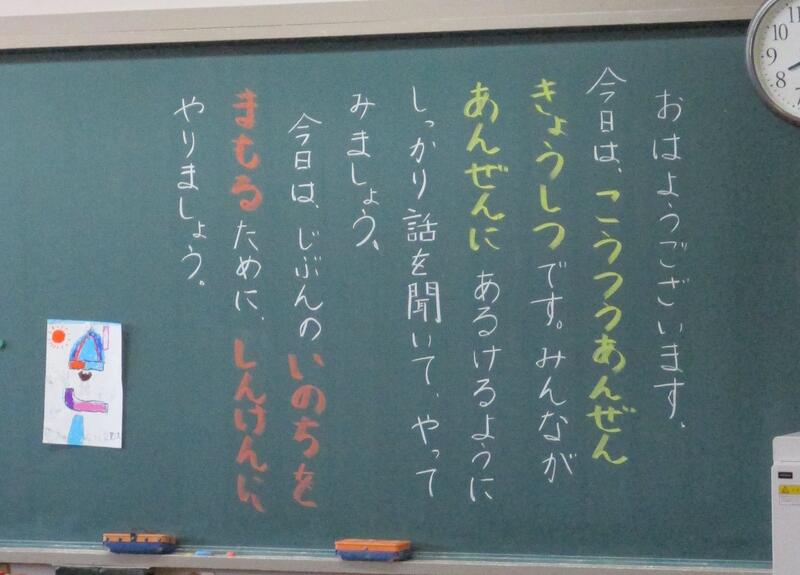 おはようございます。
今日は、こうつうあんぜん
きょうしつです。みんなが
あんぜんにあるけるように
しっかり話を聞いて、やって
みましょう、
今日は、じぶんのいのちを
まもるために、しんけんに、
やりましょう。
11
10
9
8
7